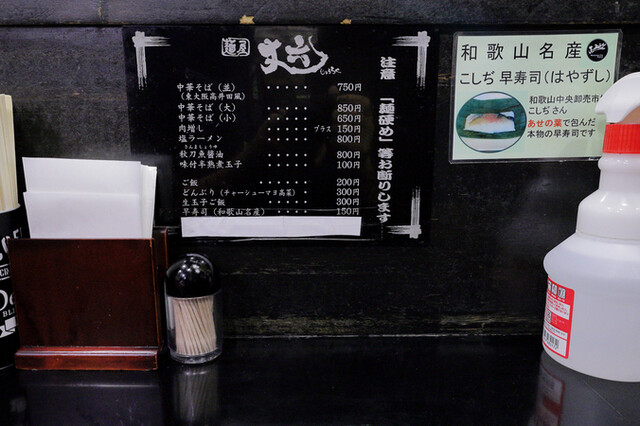 麺屋
丈六
じょうろく
中華そば(並) ・・・・・ 750円
(東大阪高井田風)
中華そば(大) ・・・・・ 850円
中華そば(小) ・・・・・ 650円
肉増し ・・・・・ プラス 150円
塩ラーメン ・・・・・ 800円
さんましょうゆ
秋刀魚醤油 ・・・・・ 800円
味付半熟煮玉子 ・・・・・ 100円
ご飯 ・・・・・ 200円
どんぶり(チャーシューマヨ高菜) 300円
生玉子ご飯 ・・・・・ 300円
早寿司(和歌山名産) ・・・・・ 150円
注意 「麺硬め」等お断りします
和歌山名産
こしぢ 早寿司(はやずし)
和歌山中央卸売市
こしぢさん
あせの葉で包んだ
本物の早寿司です